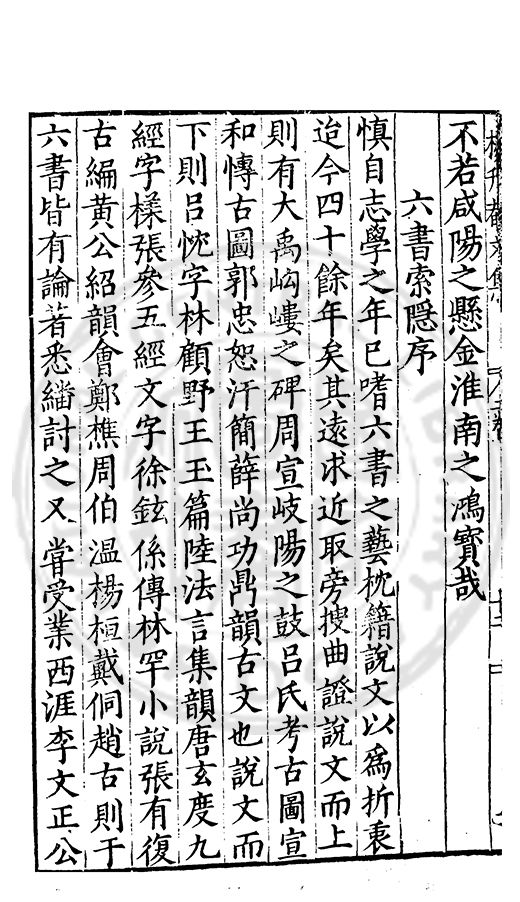 不若咸陽之懸金淮南之鴻寳哉
六書索隠序
慎自志學之年已嗜六書之藝枕籍說文以爲折衷
迨今四十餘年矣其遠求近取旁搜曲證說文而上
則有大禹岣嶁之碑周宣岐陽之鼓呂氏考古圖宣
和愽古圖郭忠恕汗簡薛尚功鼎韻古文也說文而
下則呂忱字林顧野王玉篇陸法言集韻唐玄度九
經字樣張參五經文字徐鉉係傳林罕小說張有復
古編黃公紹韻會鄭樵周伯溫楊桓戴侗趙古則于
六書皆有論著悉繙討之又甞受業西涯李文正公